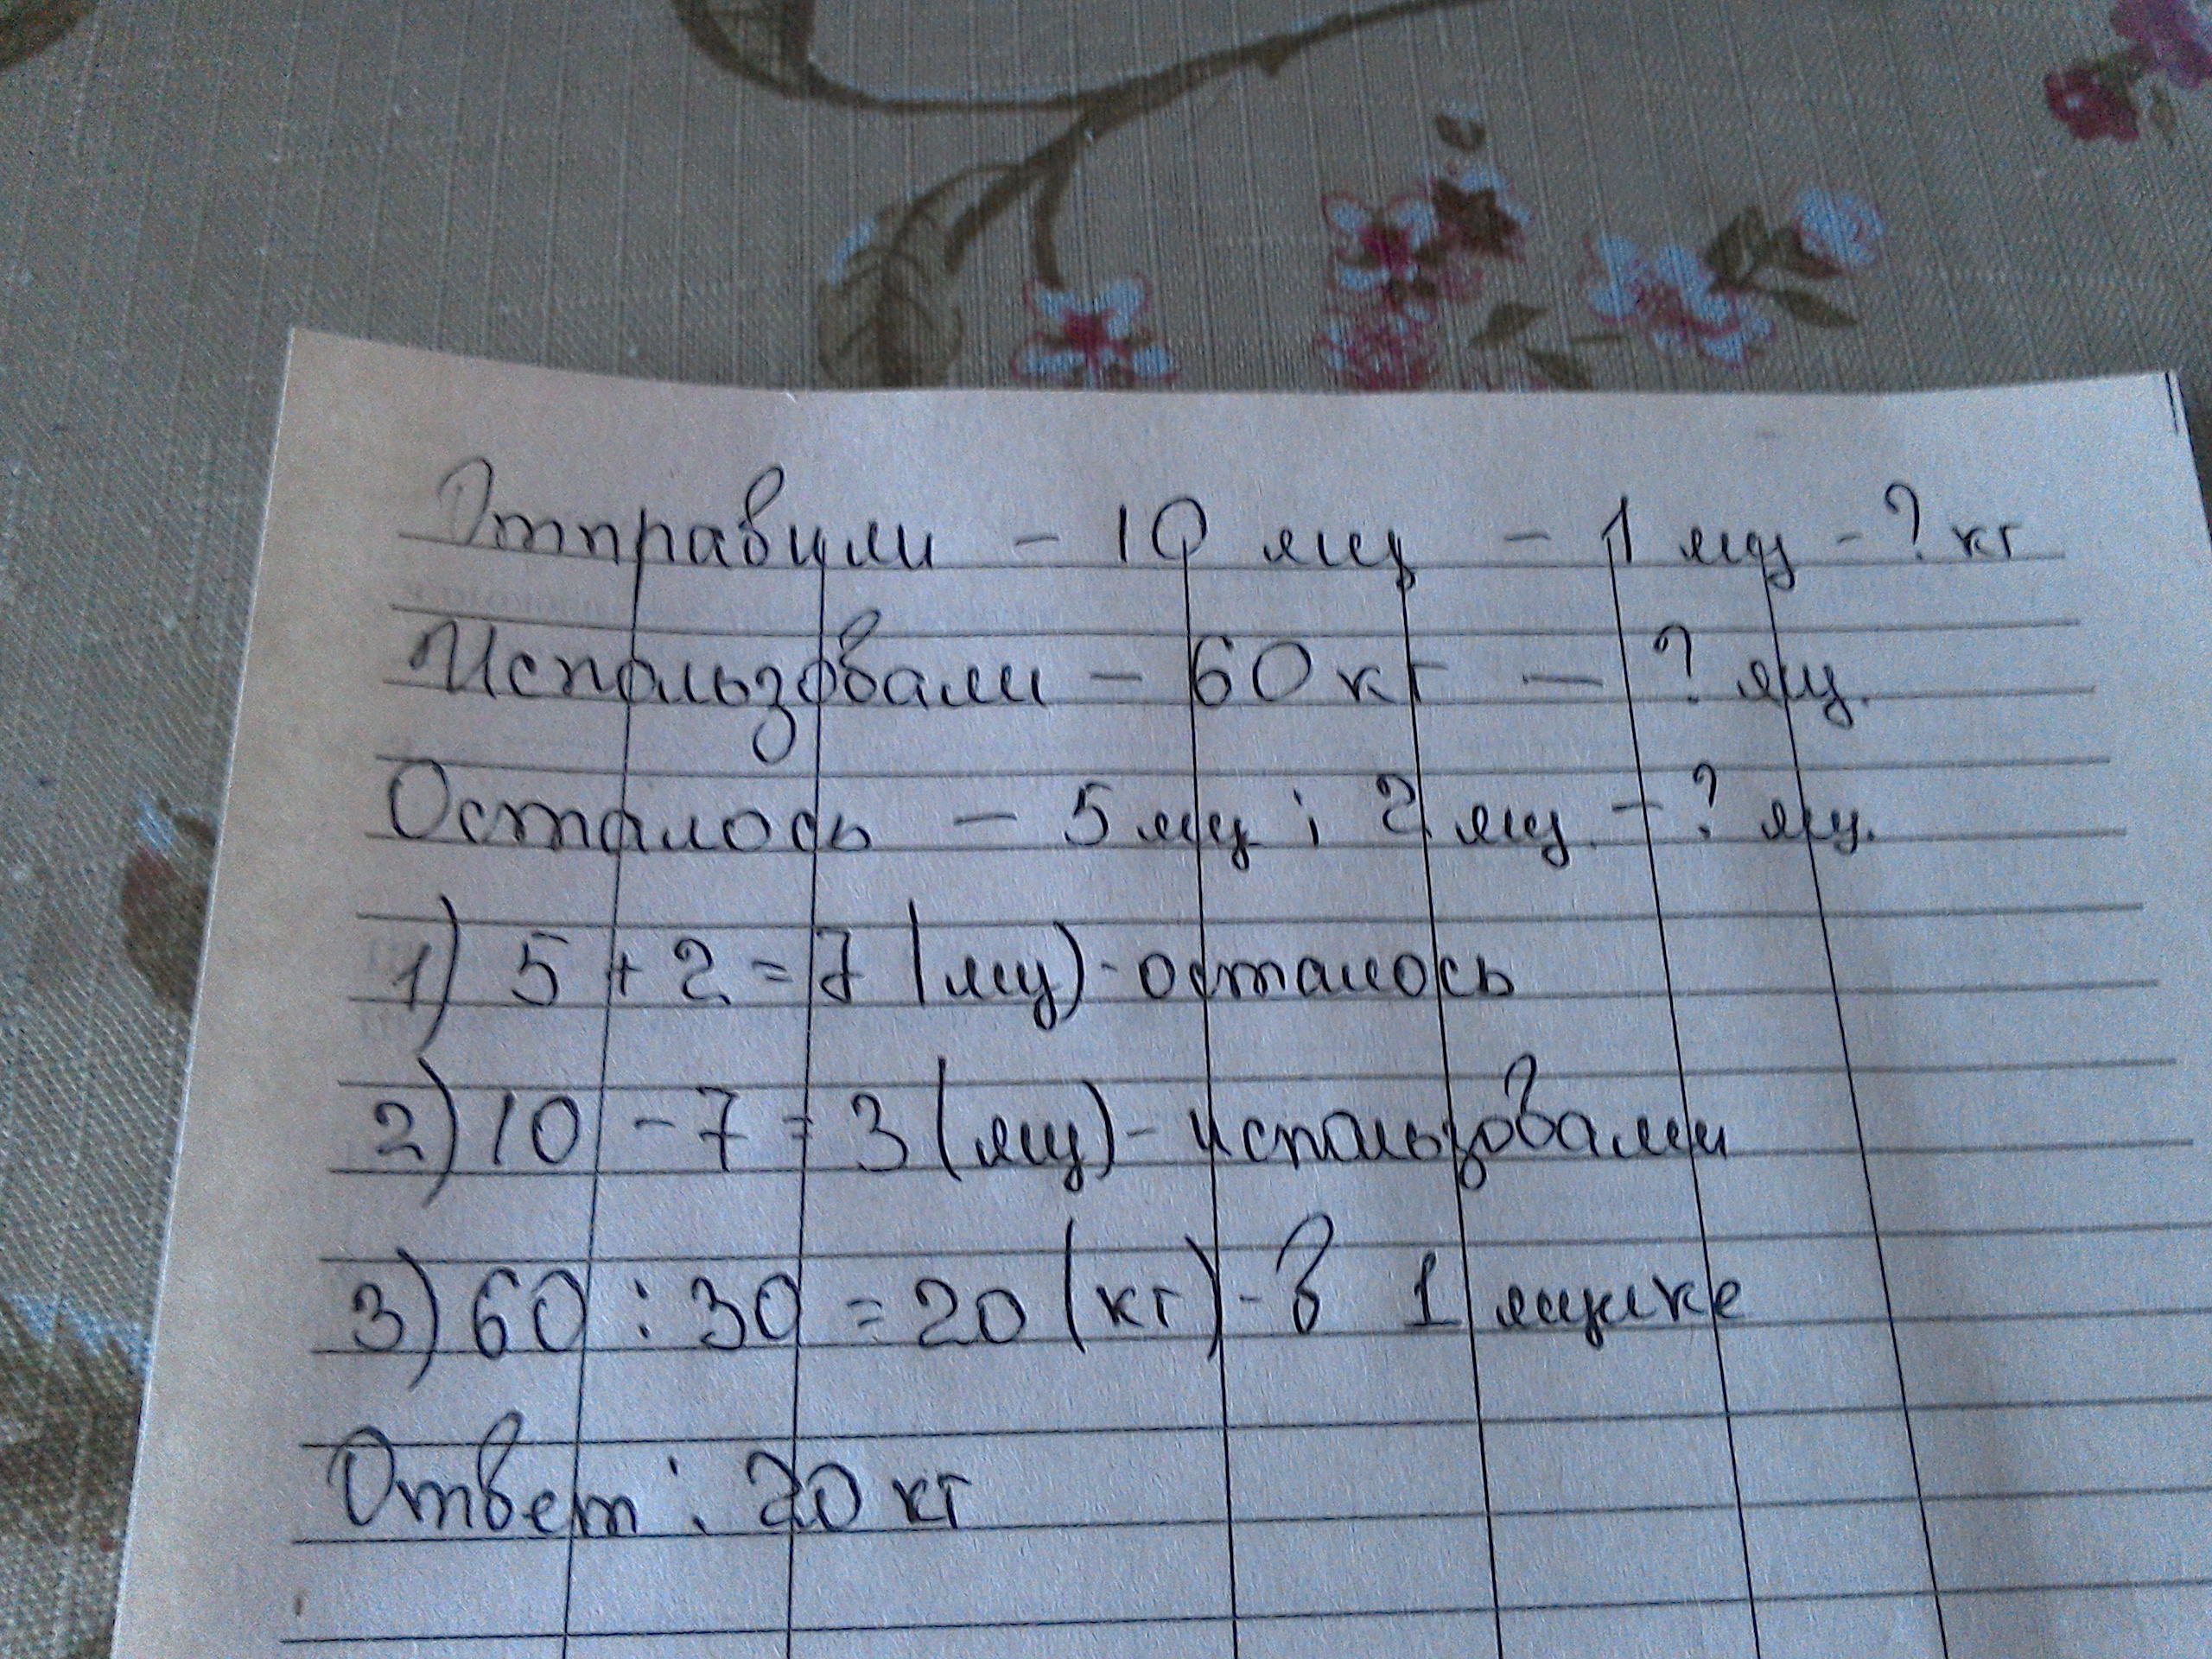 Отправили - 10 ящ - 1 ящ - ? кг
Использовали - 60 кг - ? ящ.
Осталось - 5 ящ ; 2 ящ. - ? ящ.
1) 5 + 2 = 7 (ящ) - осталось
2) 10 - 7 = 3 (ящ) - использовали
3) 60 : 30 = 20 (кг) - в 1 ящике
Ответ : 20 кг